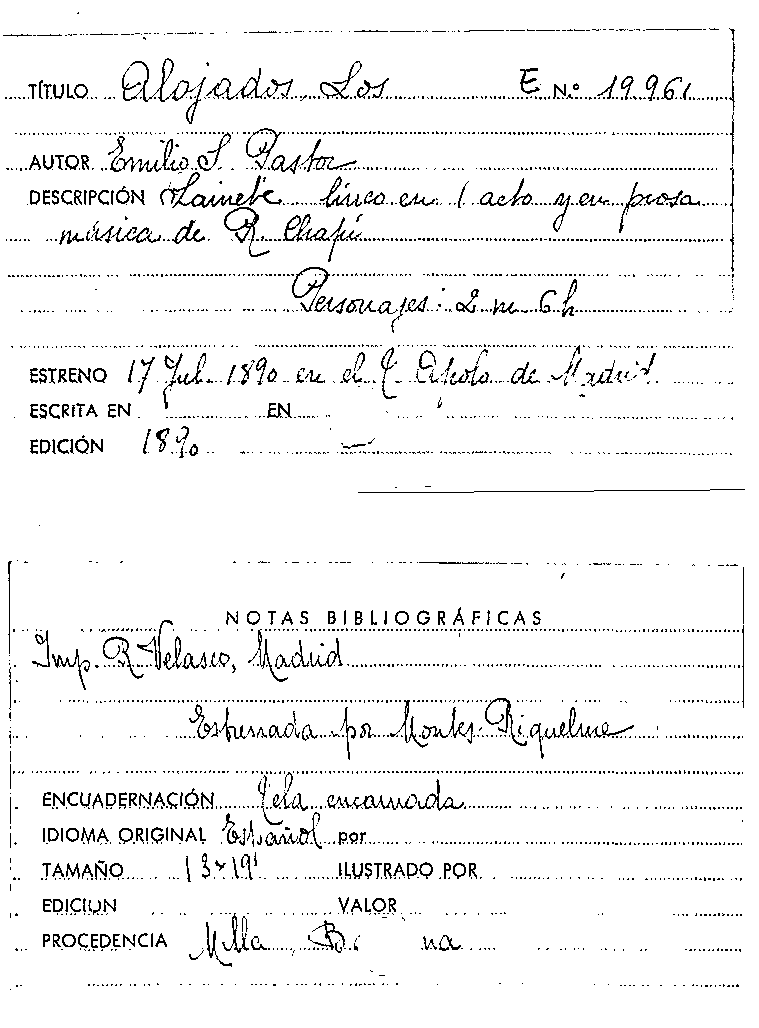 TÍTULO Alojados, Los E N.º 19961
AUTOR Emilio S. Pastor
DESCRIPCIÓN Sainete lírico en 1 acto y en prosa
música de R. Chapí
Personajes: 2 m 6 h
ESTRENO 17 Jul. 1890 en el T. Apolo de Madrid
ESCRITA EN EN
EDICIÓN 1890
NOTAS BIBLIOGRÁFICAS
Imp. R. Velasco, Madrid
Estrenada por Montes. Riquelme
ENCUADERNACIÓN Tela encarnada
IDIOMA ORIGINAL Español por
TAMAÑO 13x19 ILUSTRADO POR
EDICION VALOR
PROCEDENCIA Milla, B. na